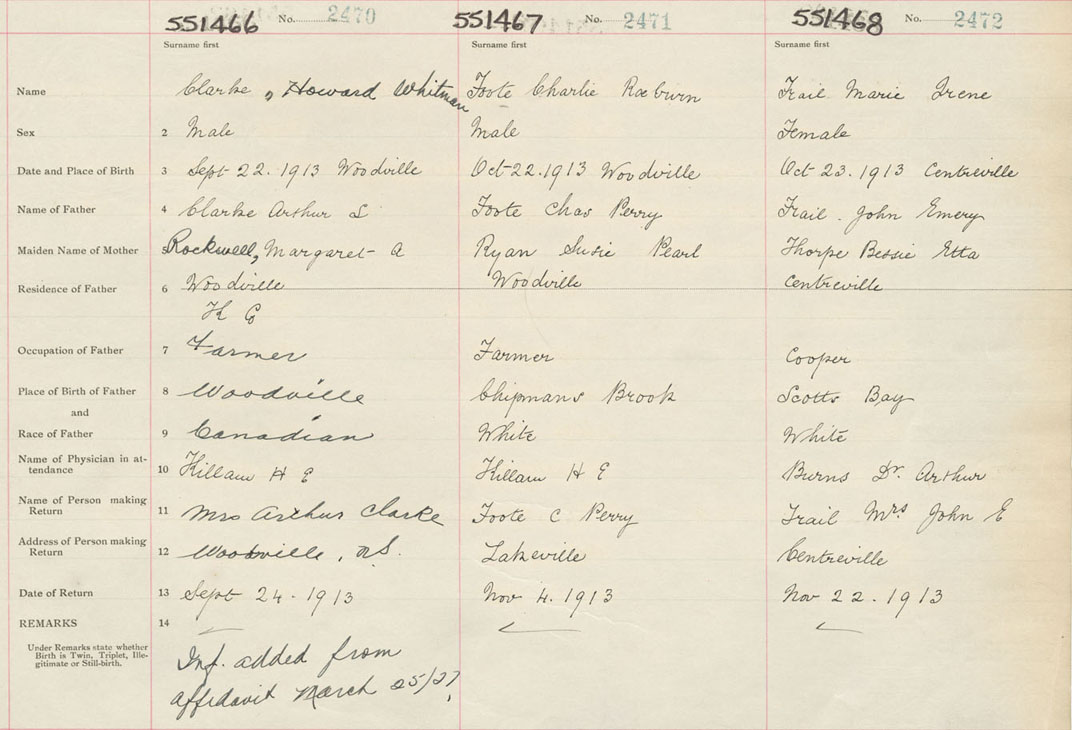 551466 No. 2470 551467 No. 2471 551468 No. 2472
Surname first Surname first Surname first
Name Clarke, Howard Whitman Foote Charlie Roxburn Trail Marie Irene
Sex 2 Male Male Female
Date and Place of Birth 3 Sept 22. 1913 Woodville Oct 22. 1913 Woodville Oct 23. 1913 Centreville
Name of Father 4 Clarke Arthur L Foote Chas Perry Trail. John Emery
Maiden Name of Mother 5 Rockwell, Margaret A Ryan Susie Pearl Thorpe Bessie Etta
Residence of Father 6 Woodville Woodville Centreville
K Co
Occupation of Father 7 Farmer Farmer Cooper
Place of Birth of Father 8 Woodville Chipmans Brook Scotts Bay
and
Race of Father 9 Canadian White White
Name of Physician in at-
tendance 10 Killam H E Killam H E Burns Dr. Arthur
Name of Person making
Return 11 Mrs Arthur Clarke Foote C Perry Trail Mrs John E
Address of Person making
Return 12 Woodville, N.S. Lakeville Centreville
Date of Return 13 Sept 24. 1913 Nov 4. 1913 Nov 22. 1913
REMARKS 14
Under Remarks state whether
Birth is Twin, Triplet, Ille-
gitimate or Still-birth.
Inf. added from
affidavit March 25/27